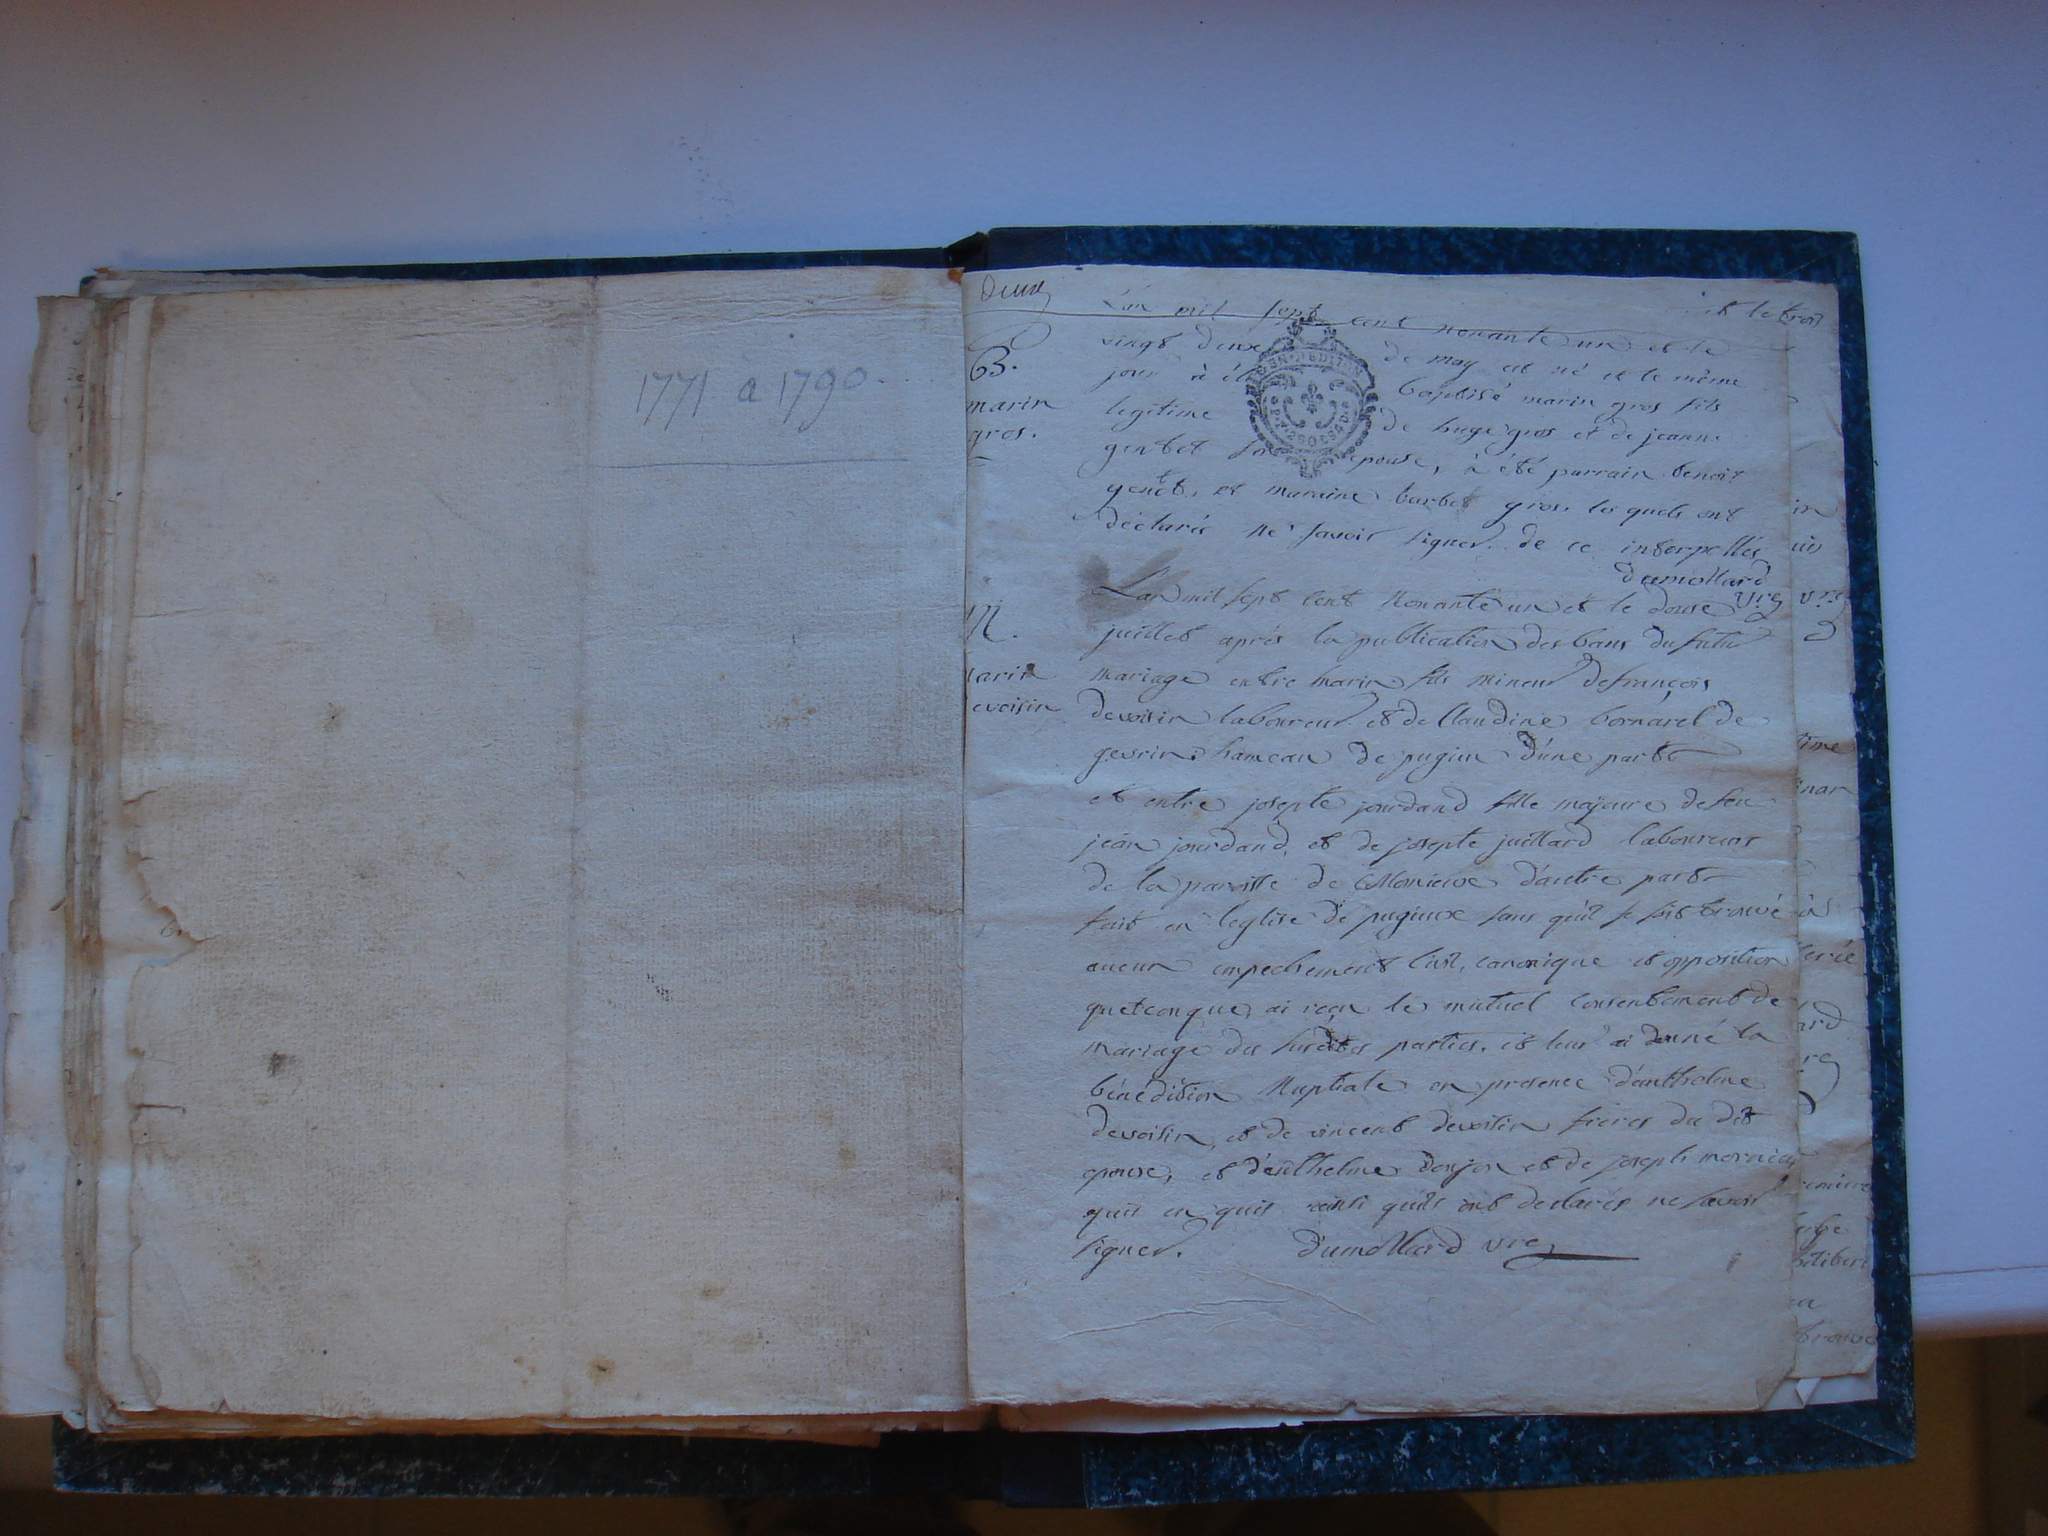 1771 a 1790.
Deux
L'an mil sept cent nonante un et le
vingt deux de may est né et le même
B. jour à été baptisé marin gros fils
marin legitime de huge gros et de jeanne
gros. gentet son epouse, à été parrain benoit
gentet, et maraine barbet gros, les quels ont
déclarés ne savoir signer. de ce interpellés
dumollard
vre
L'an mil sept cent Nonante un et le douse
M. juillet après la publication des bans du futur
arin mariage entre marin fils mineur de françois
evoisin devoisin laboureur et de Claudine bornarel de
gevrin, hameau de pugieu d'une part
et entre josepte jourdand fille majeure de feu
jean jourdand, et de josepte juillard laboureurs
de la paroisse de d'autre part
fait en l'eglise de pugieux sans qu'il se soit trouvé
aucun empechement Civil, canonique et opposition
quelconque, ai reçu le mutuel Consentement de
mariage des susdites parties. et leur ai donné la
bénédition Nuptiale en presence d'anthelme
devoisin, et de vincent devoisin frères du dit
epoux, et d'anthelme donjon et de joseph mornieu
qui en quit ainsi quils ont declarés ne savoir
signer. dumollard vre